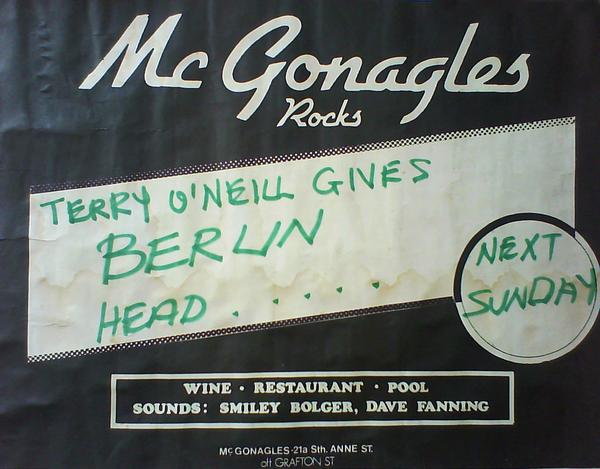 Mc Gonagles
Rocks
TERRY O'NEILL GIVES
BERLIN
HEAD . . . . .
NEXT
SUNDAY
WINE • RESTAURANT • POOL
SOUNDS: SMILEY BOLGER, DAVE FANNING
McGONAGLES-21a Sth. ANNE ST.
off GRAFTON ST